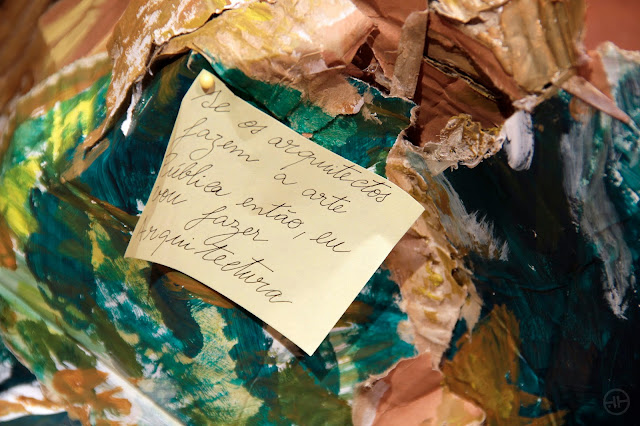 Se os arquitectos
fazem a arte
Publica então, eu
vou fazer
Arquitectura